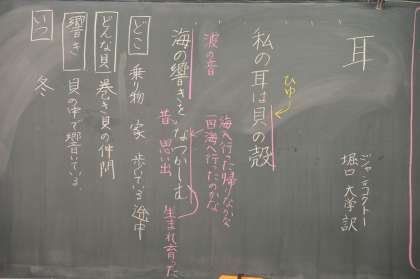 耳
ジャン・コクトー
堀口 大学 訳
私の耳は貝の殻
ひゆ
海の響きをなつかしむ
波の音
昔 思い出
生まれ育った
どこ 乗り物 家 歩いている途中
どんな貝 巻き貝の仲間
響き 貝の中で響いている
いつ 冬